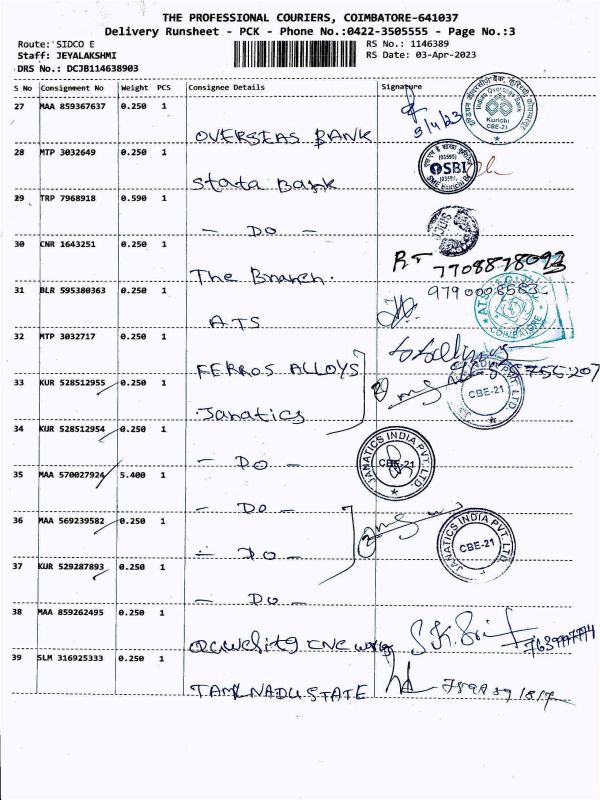 THE PROFESSIONAL COURIERS, COIMBATORE-641037
Delivery Runsheet - PCK - Phone No.:0422-3505555 - Page No.:3
Route: SIDCO E RS No.: 1146389
Staff: JEYALAKSHMI RS Date: 03-Apr-2023
DRS No.: DCJB114638903
S No Consignment No Weight PCS Consignee Details Signature
27 MAA 859367637 0.250 1
OVERSEAS BANK 3/4/23
Indian Overseas Bank Kurichi CBE-21
28 MTP 3032649 0.250 1
Stata Bank
(03595) SBI SME Kurichi
29 TRP 7968918 0.590 1
- DO -
30 CNR 1643251 0.250 1
The Branch.
7708878093
31 BLR 595380363 0.250 1
ATS
COIMBATORE
32 MTP 3032717 0.250 1
FERROS ALLOYS
33 KUR 528512955 0.250 1
Janatics
CBE-21
34 KUR 528512954 0.250 1
- DO -
JANATICS INDIA PVT. LTD. CBE-21
35 MAA 570027924 5.400 1
- DO -
36 MAA 569239582 0.250 1
- DO -
JANATICS INDIA PVT. LTD. CBE-21
37 KUR 529287893 0.250 1
- DO -
38 MAA 859262495 0.250 1
CNC works
39 SLM 316925333 0.250 1
TAMILNADU STATE